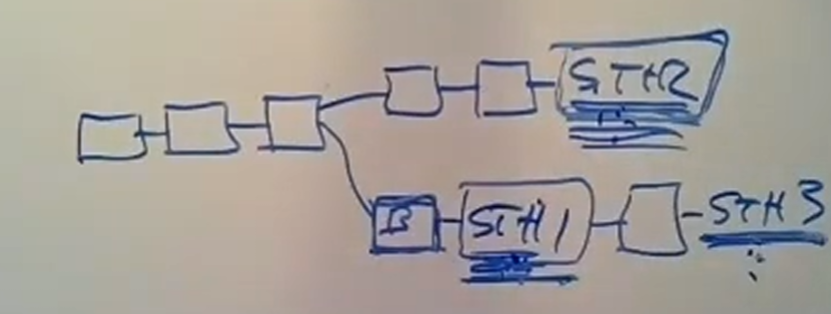 STH2
B
STH1
STH3